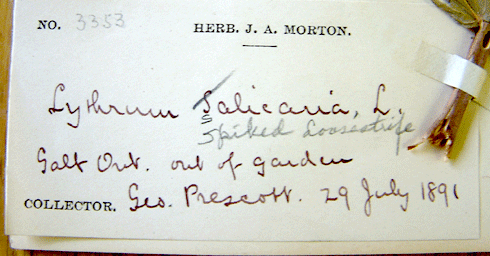 NO. 3353 HERB. J. A. MORTON.
Lythrum Salicaria, L.
Spiked Loosestrife
Galt Ont. out of garden
COLLECTOR. Geo. Prescott. 29 July 1891